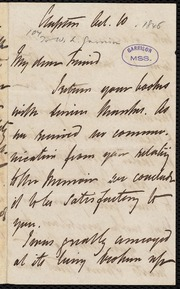 Clapton Oct. 10
1846
To W. L. Garrison
GARRISON
MSS.
My dear Friend
I return your books
with sincere thanks. As
we received no commu-
nication from your relating
to the Memoir we conclude
it to be satisfactory to
you.
I was greatly annoyed
at its being broken up